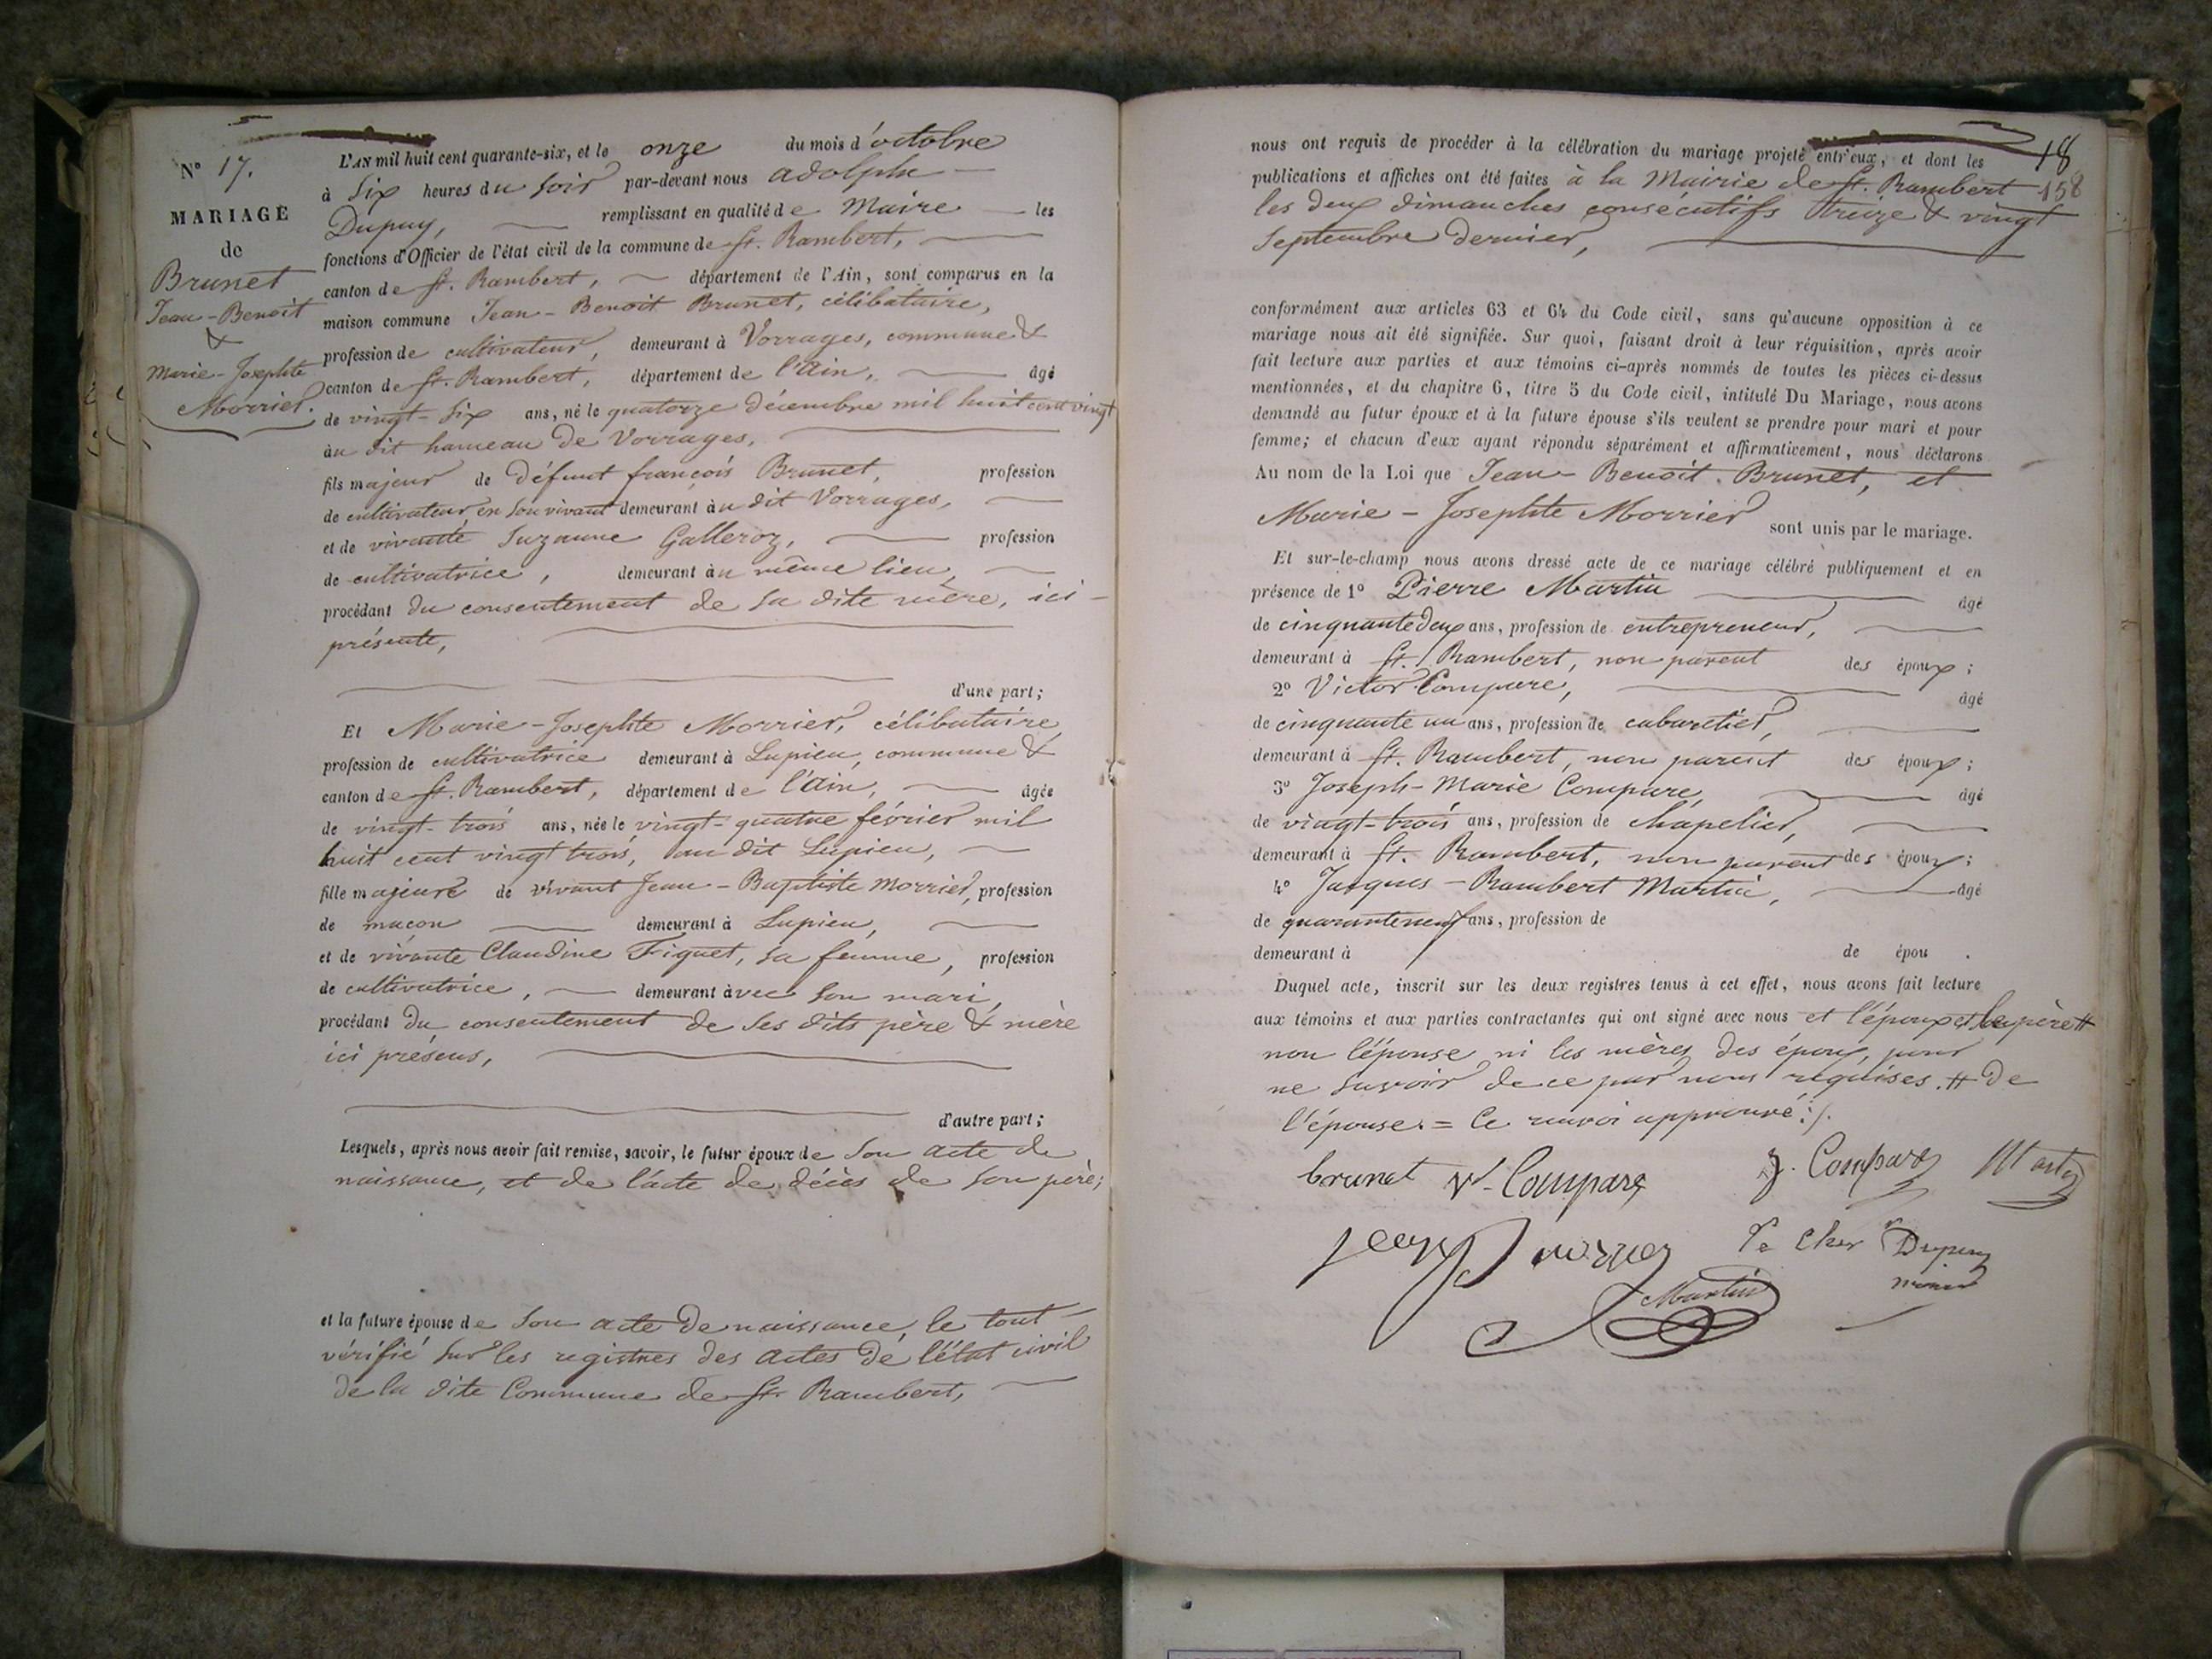 N° 17.
MARIAGE
de
Brunet
Jean-Benoit
&
Marie-Josephte
Morrier.
L'AN mil huit cent quarante-six, et le onze du mois d'octobre
à six heures du soir par-devant nous adolphe
Dupuy, remplissant en qualité de Maire les
fonctions d'Officier de l'état civil de la commune de St. Rambert,
canton de St. Rambert, département de l'Ain, sont comparus en la
maison commune Jean-Benoit Brunet, célibataire,
profession de cultivateur, demeurant à Vorrages, commune &
canton de St. Rambert, département de l'Ain, âgé
de vingt-six ans, né le quatorze décembre mil huit cent vingt
au dit hameau de Vorrages,
fils majeur de défunt françois Brunet, profession
de cultivateur en son vivant demeurant au dit Vorrages,
et de vivante Suzanne Galleroz, profession
de cultivatrice, demeurant au même lieu,
procédant du consentement de sa dite mère, ici-
présente,
d'une part;
Et Marie-Josephte Morrier, célibataire
profession de cultivatrice demeurant à Lupieu, commune &
canton de St. Rambert, département de l'Ain, âgée
de vingt-trois ans, née le vingt-quatre février mil
huit cent vingt trois, au dit Lupieu,
fille majeure de vivant Jean-Baptiste Morrier, profession
de maçon demeurant à Lupieu,
et de vivante Claudine Figuet, sa femme, profession
de cultivatrice, demeurant avec son mari,
procédant du consentement de ses dits père & mère
ici présens,
d'autre part;
Lesquels, après nous avoir fait remise, savoir, le futur époux de son acte de
naissance, et de l'acte de décès de son père;
et la future épouse de son acte de naissance, le tout
vérifié sur les registres des actes de l'état civil
de la dite Commune de St. Rambert,
18
158
nous ont requis de procéder à la célébration du mariage projeté entr'eux, et dont les
publications et affiches ont été faites à la Mairie de St. Rambert
les deux dimanches consécutifs treize & vingt
septembre dernier,
conformément aux articles 63 et 64 du Code civil, sans qu'aucune opposition à ce
mariage nous ait été signifiée. Sur quoi, faisant droit à leur réquisition, après avoir
fait lecture aux parties et aux témoins ci-après nommés de toutes les pièces ci-dessus
mentionnées, et du chapitre 6, titre 5 du Code civil, intitulé Du Mariage, nous avons
demandé au futur époux et à la future épouse s'ils veulent se prendre pour mari et pour
femme; et chacun d'eux ayant répondu séparément et affirmativement, nous déclarons
Au nom de la Loi que Jean-Benoit Brunet, et
Marie-Josephte Morrier sont unis par le mariage.
Et sur-le-champ nous avons dressé acte de ce mariage célébré publiquement et en
présence de 1° Pierre Martin âgé
de cinquante deux ans, profession de entrepreneur,
demeurant à St. Rambert, non parent des époux;
2° Victor Compare, âgé
de cinquante un ans, profession de cabaretier,
demeurant à St. Rambert, non parent des époux;
3° Joseph-Marie Compare, âgé
de vingt-trois ans, profession de chapelier,
demeurant à St. Rambert, non parent des époux;
4° Jacques-Rambert Martin, âgé
de quarante neuf ans, profession de
demeurant à de épou .
Duquel acte, inscrit sur les deux registres tenus à cet effet, nous avons fait lecture
aux témoins et aux parties contractantes qui ont signé avec nous et l'époux et le père #
non l'épouse ni les mères des époux, pour
ne savoir de ce par nous requises. # de
l'épouse. = Ce renvoi approuvé ./.
brunet V. Compare J. Compare Martin
Dupuy
Martin